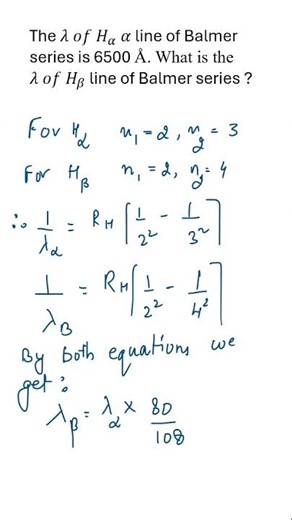 The λ of Hα α line of Balmer
series is 6500 Å. What is the
λ of Hβ line of Balmer series ?
For Hα n₁ = 2, n₂ = 3
For Hβ n₁ = 2, n₂ = 4
∴ 1/λα = R_H [1/2² - 1/3²]
1/λβ = R_H [1/2² - 1/4²]
By both equations we
get:
λβ = λα × 80/108